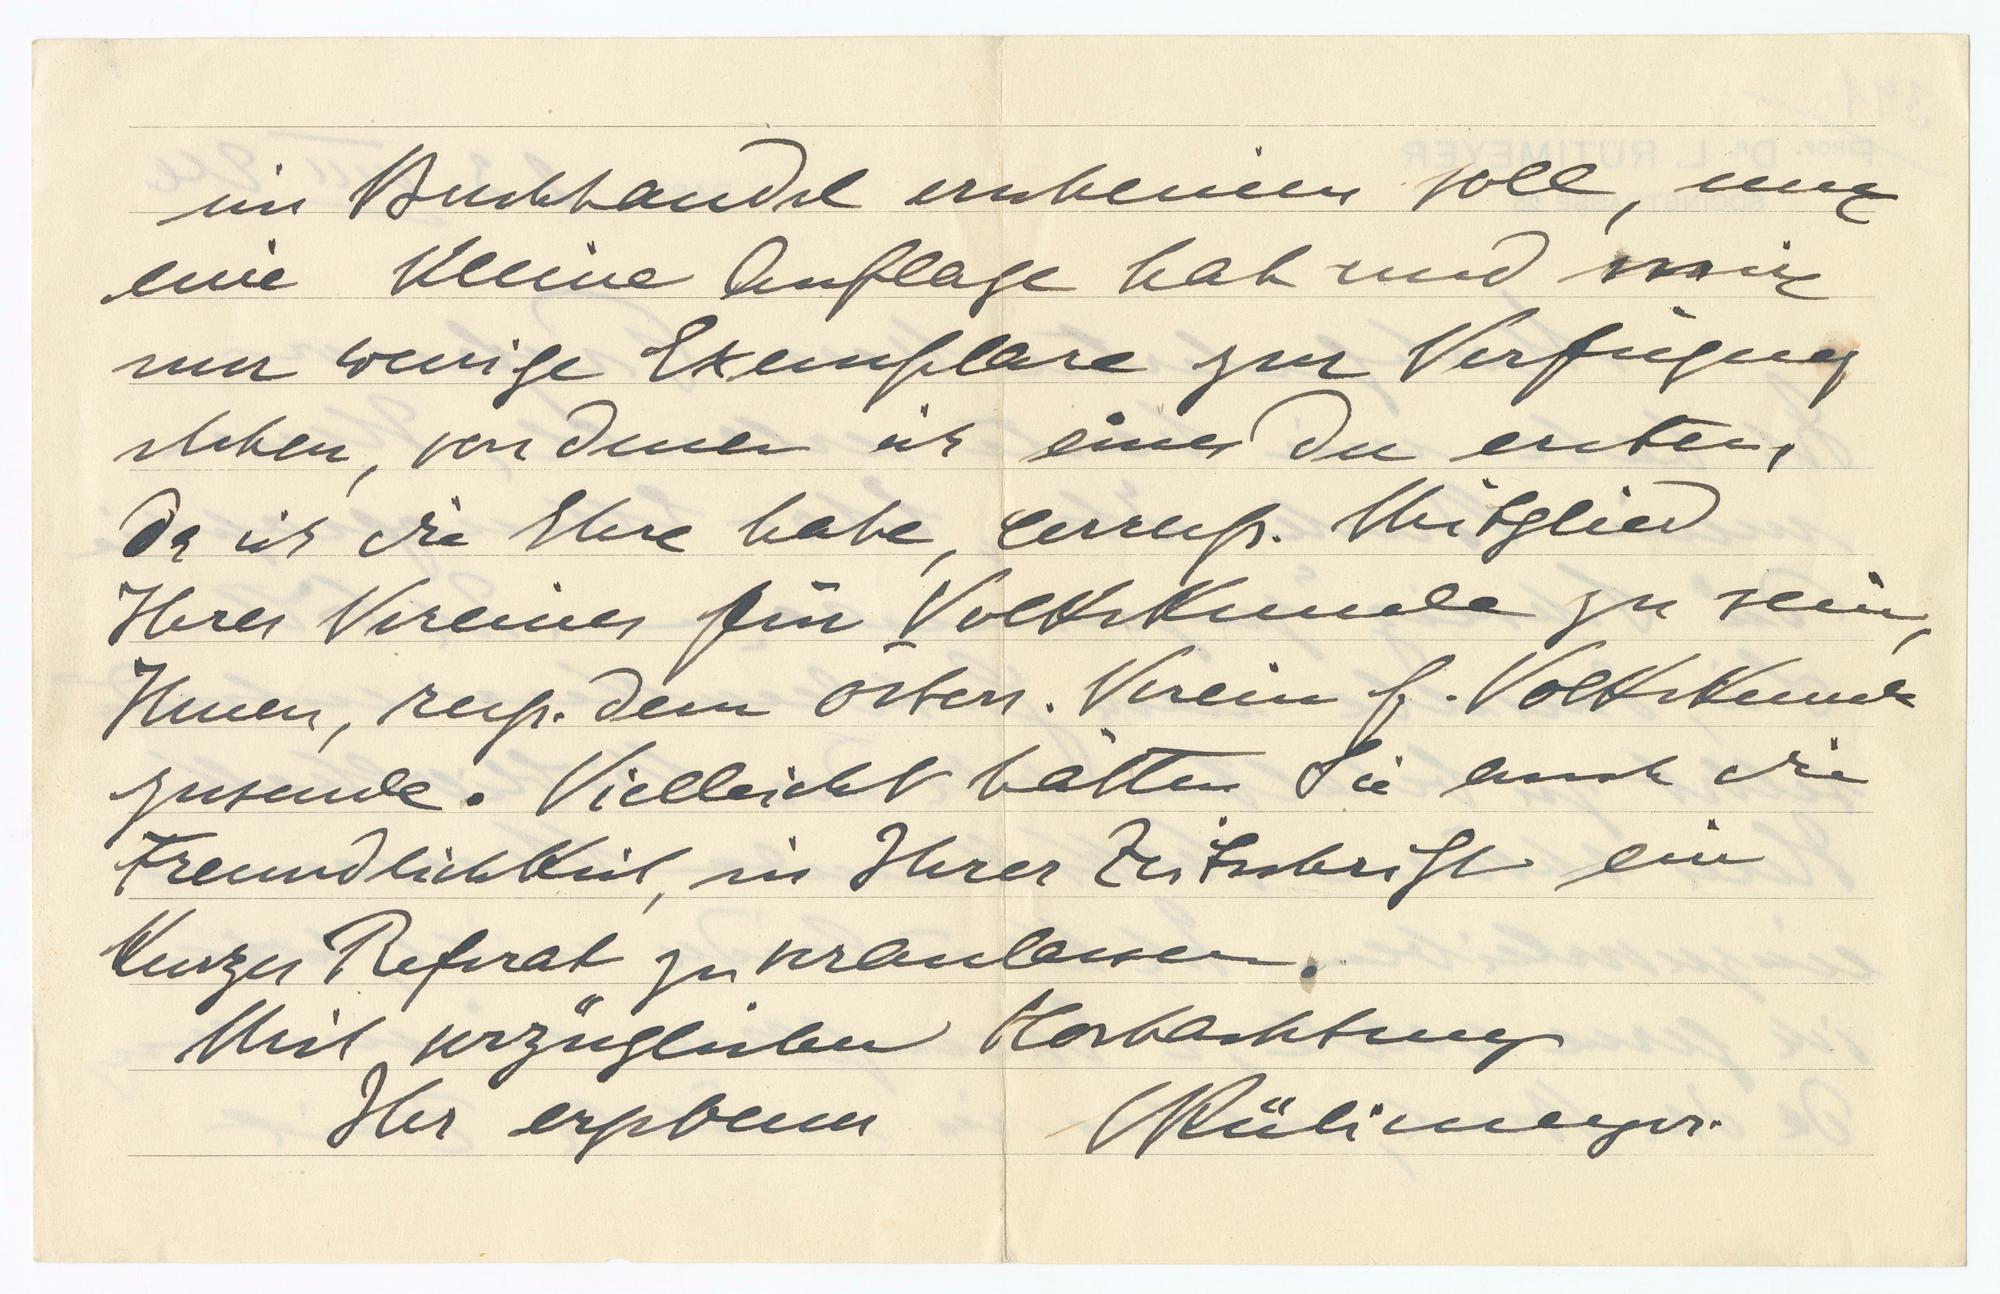 im Buchhandel erscheinen soll, nur
eine kleine Auflage hat und mir
nur wenige Exemplare zur Verfügung
stehen, von denen ich eines der ersten,
da ich die Ehre habe, corresp. Mitglied
Ihres Vereines für Volkskunde zu sein,
Ihnen, resp. dem österr. Verein f. Volkskunde
zusende. Vielleicht hätten Sie auch die
Freundlichkeit, in Ihrer Zeitschrift ein
kurzes Referat zu veranlassen.
Mit vorzüglicher Hochachtung
Ihr ergebener LRütimeyer.